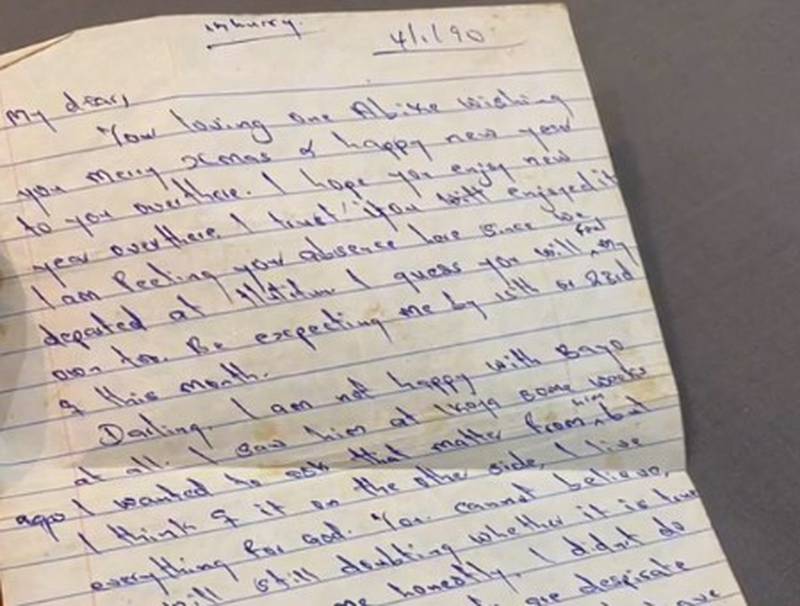 inhurry.
4/1/90
My dear,
Your loving one Abike wishing
you merry Xmas & happy new year
to you overthere. I hope you enjoy new
year overthere. I trust you will enjoyed it
I am feeling your absence here since we
departed at I guess you will feel my
own too. Be expecting me by 15th or 23rd
of this month.
Darling. I am not happy with Bayo
at all. I saw him at Ikoya some weeks
ago I wanted to ask that matter from him but
I think of it on the other side, I live
everything for God. You cannot believe,
still doubting whether it is true
me honestly. I didn't do
are despirate